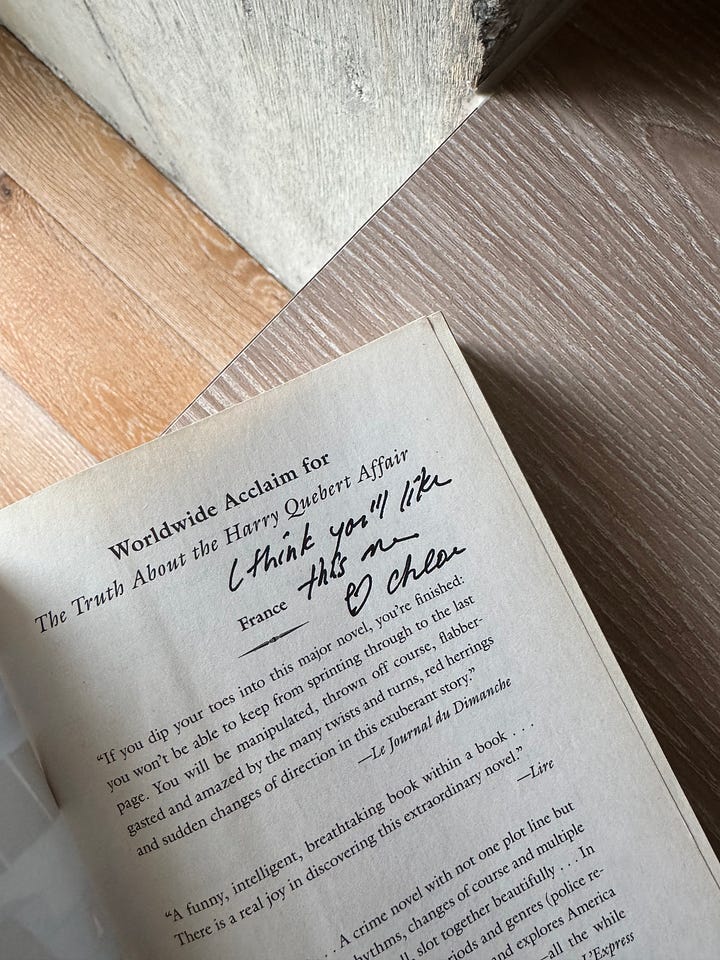 Worldwide Acclaim for
The Truth About the Harry Quebert Affair
I think you'll like
this one
♡ chloe
France
“If you dip your toes into this major novel, you’re finished:
you won’t be able to keep from sprinting through to the last
page. You will be manipulated, thrown off course, flabber-
gasted and amazed by the many twists and turns, red herrings
and sudden changes of direction in this exuberant story.”
—Le Journal du Dimanche
“A funny, intelligent, breathtaking book within a book . . .
There is a real joy in discovering this extraordinary novel.”
—Lire
. . A crime novel with not one plot line but
hythms, changes of course and multiple
slot together beautifully . . . In
riods and genres (police re-
and explores America
—all the while
L’Express